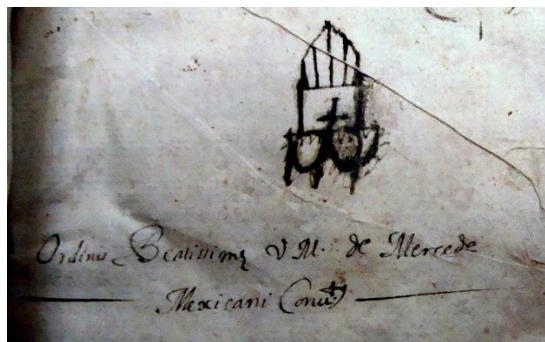 Ordinis Beatissimę V M. de Mercede
Mexicani Conu.tꝰ